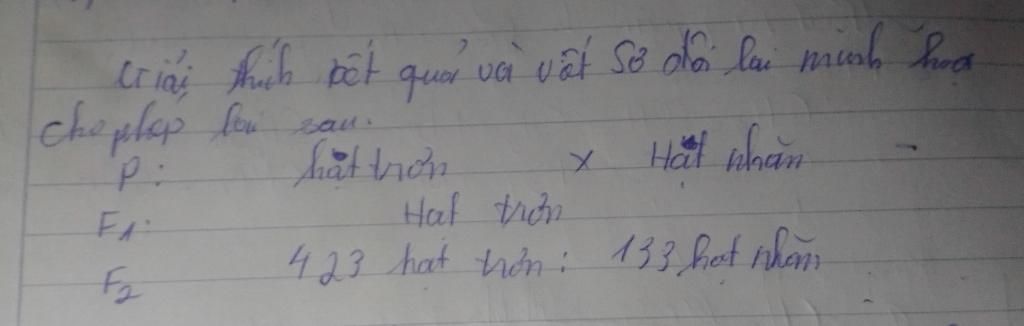 Giải thích kết quả và viết Sơ đồ lai minh hoạ
cho phép lai sau.
P: hạt trơn x Hạt nhăn
F1: Hạt trơn
F2 423 hạt trơn: 133 hạt nhăn